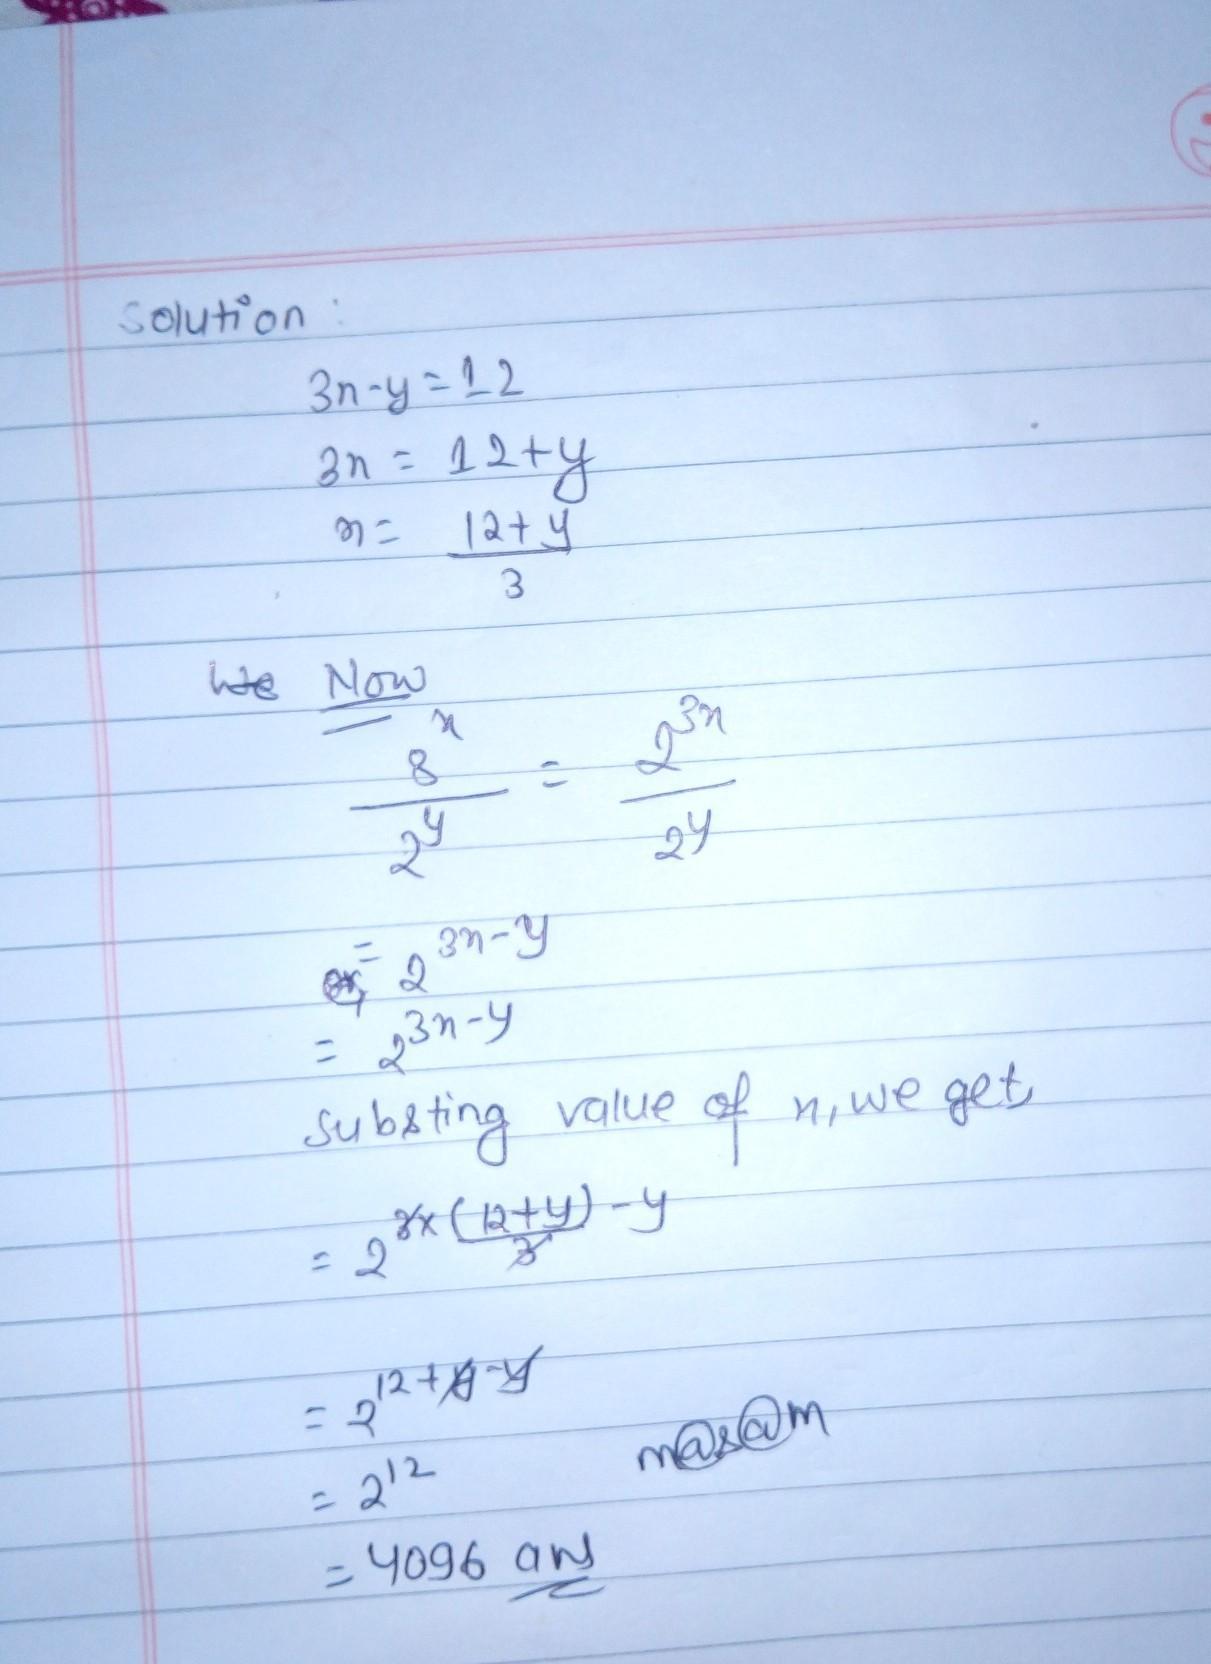 Solution :
3x-y=12
3x = 12+y
x= 12+y/3
We Now
8^x/2^y = 2^3x/2^y
or, = 2^3x-y
= 2^3x-y
substing value of x, we get,
= 2^3x(12+y)/3-y
= 2^12+y-y
= 2^12
m@s@m
= 4096 ans